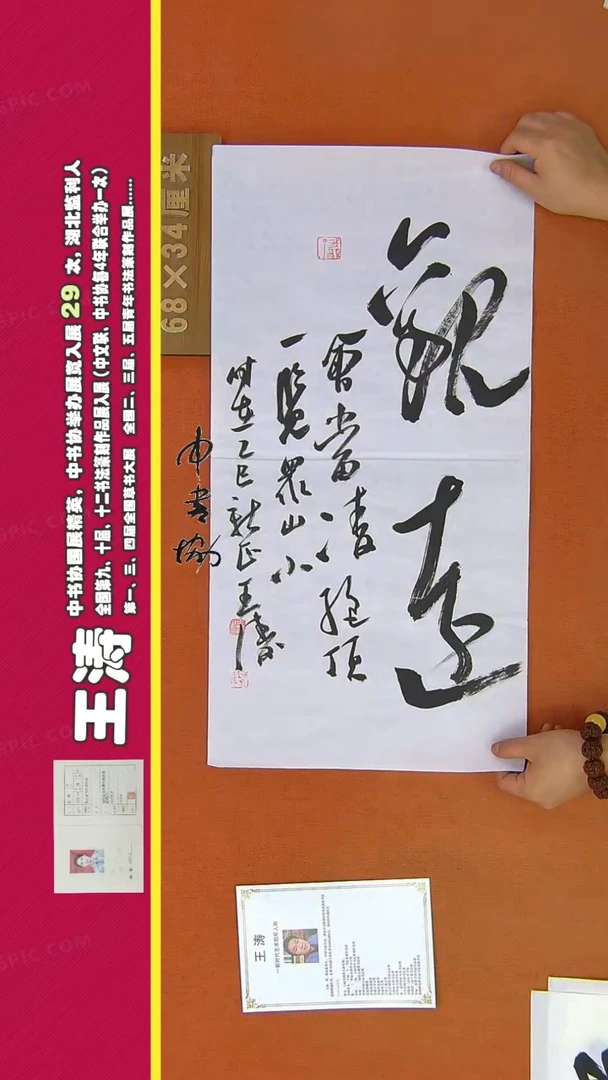 王涛
中书协国展精英，中书协举办展览入展 29 次，湖北监利人
全国第九、十届、十二书法篆刻作品展入展（中文联、中书协每4年联合举办一次）
第一、三、四届全国草书大展 全国二、三届、五届青年书法篆刻作品展......
68×34厘米
觀遠
會當凌絕頂
一覽眾山小
時在乙巳新正 王濤
中書協
王涛